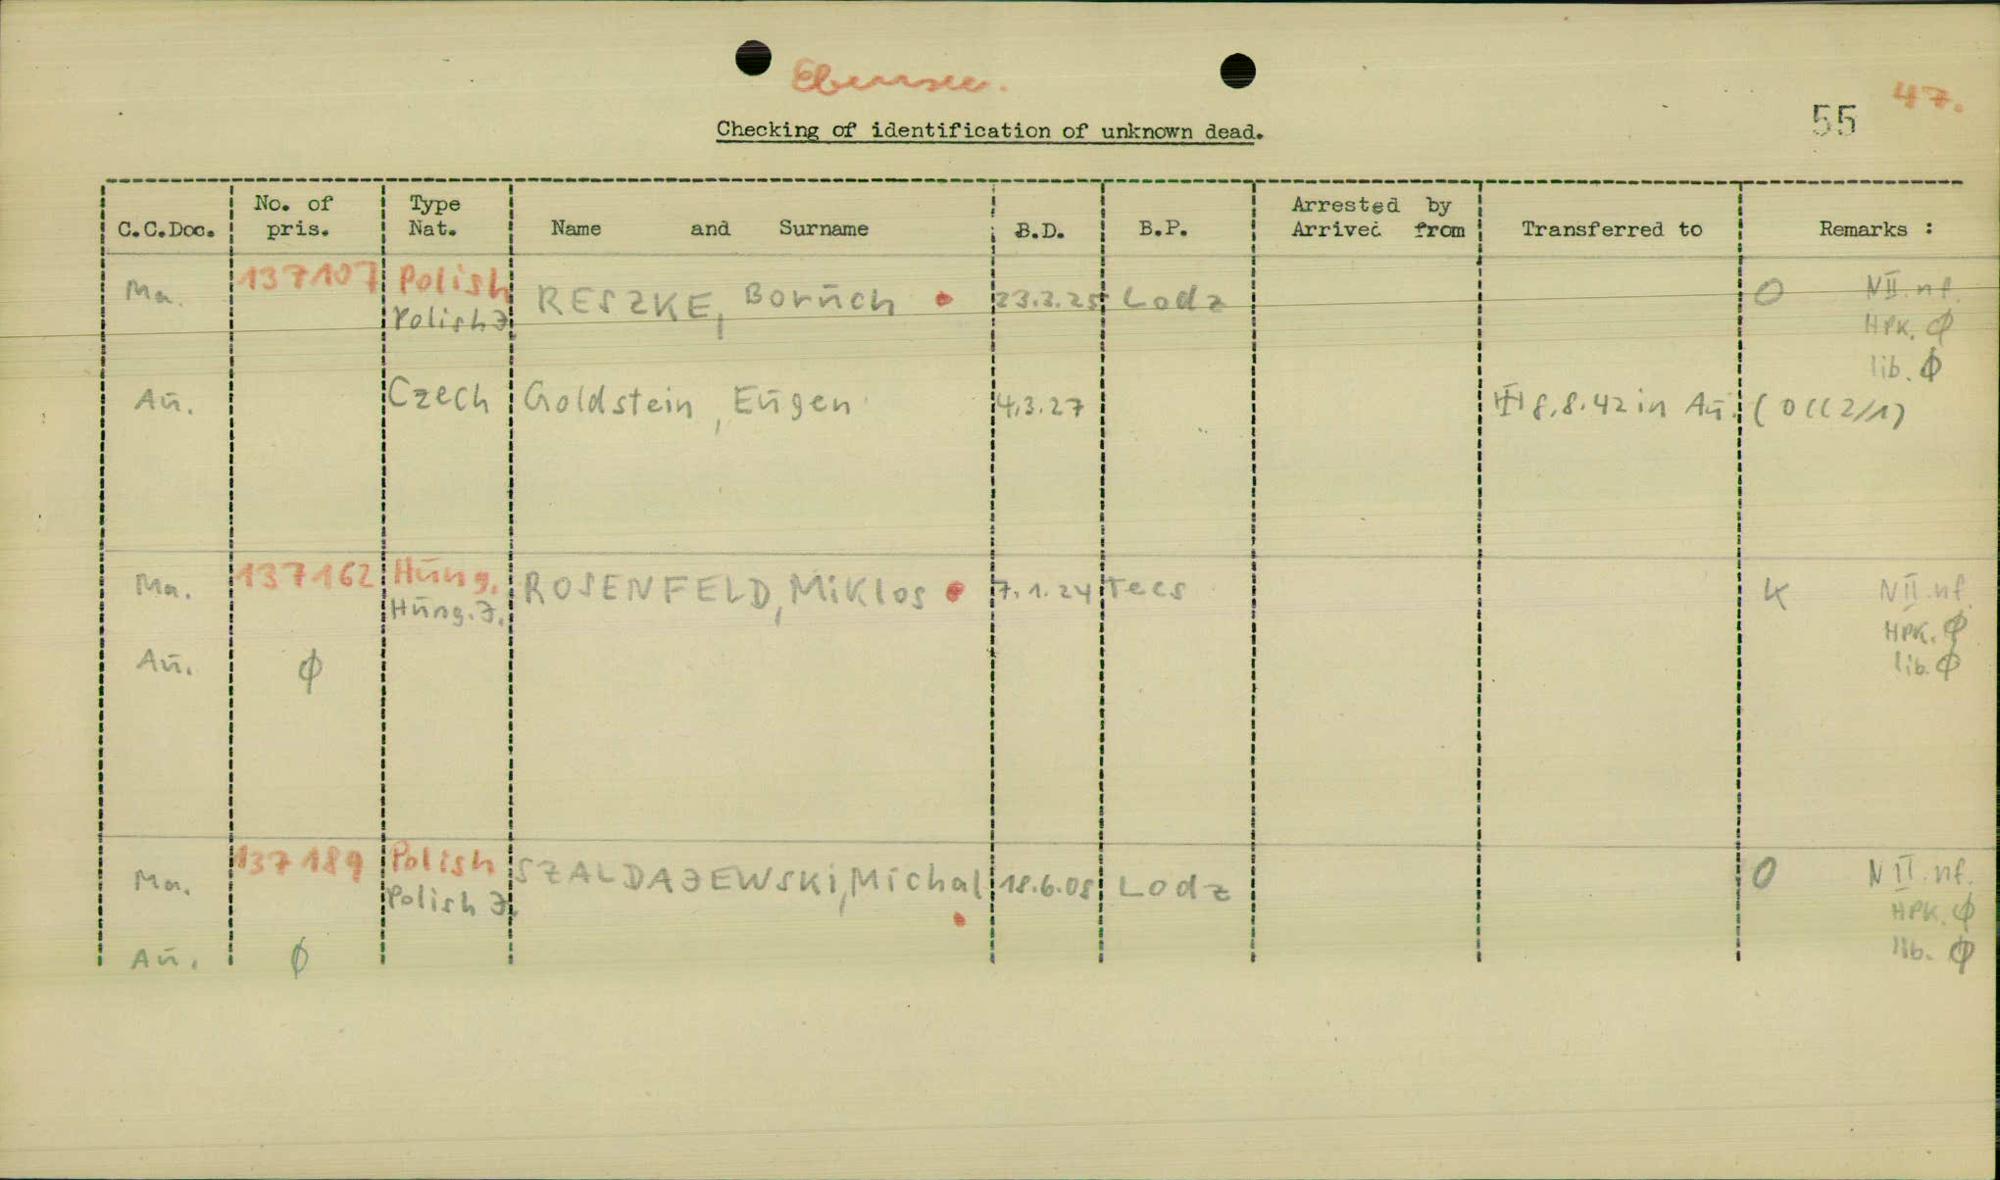 Ebensee.
47.
55
Checking of identification of unknown dead.
C.C.Doc. No. of pris. Type Nat. Name and Surname B.D. B.P. Arrested by Arrived from Transferred to Remarks :
Ma. 137107 Polish RESZKE, Borūch 23.2.25 Lodz O N II. nf.
Polish J. HPK. ϕ
lib. ϕ
Aū. Czech Goldstein, Eūgen 4.3.27 8.8.42 in Aū. (OCC 2/1)
Ma. 137162 Hūng. ROSENFELD, Miklos 7.1.24 Tecs K N II. nf.
Hūng. J. HPK. ϕ
Aū. ϕ lib. ϕ
Ma. 137189 Polish SZALDAJEWSKi, Michal 18.6.08 Lodz O N II. nf.
Polish J. HPK. ϕ
Aū. ϕ lib. ϕ